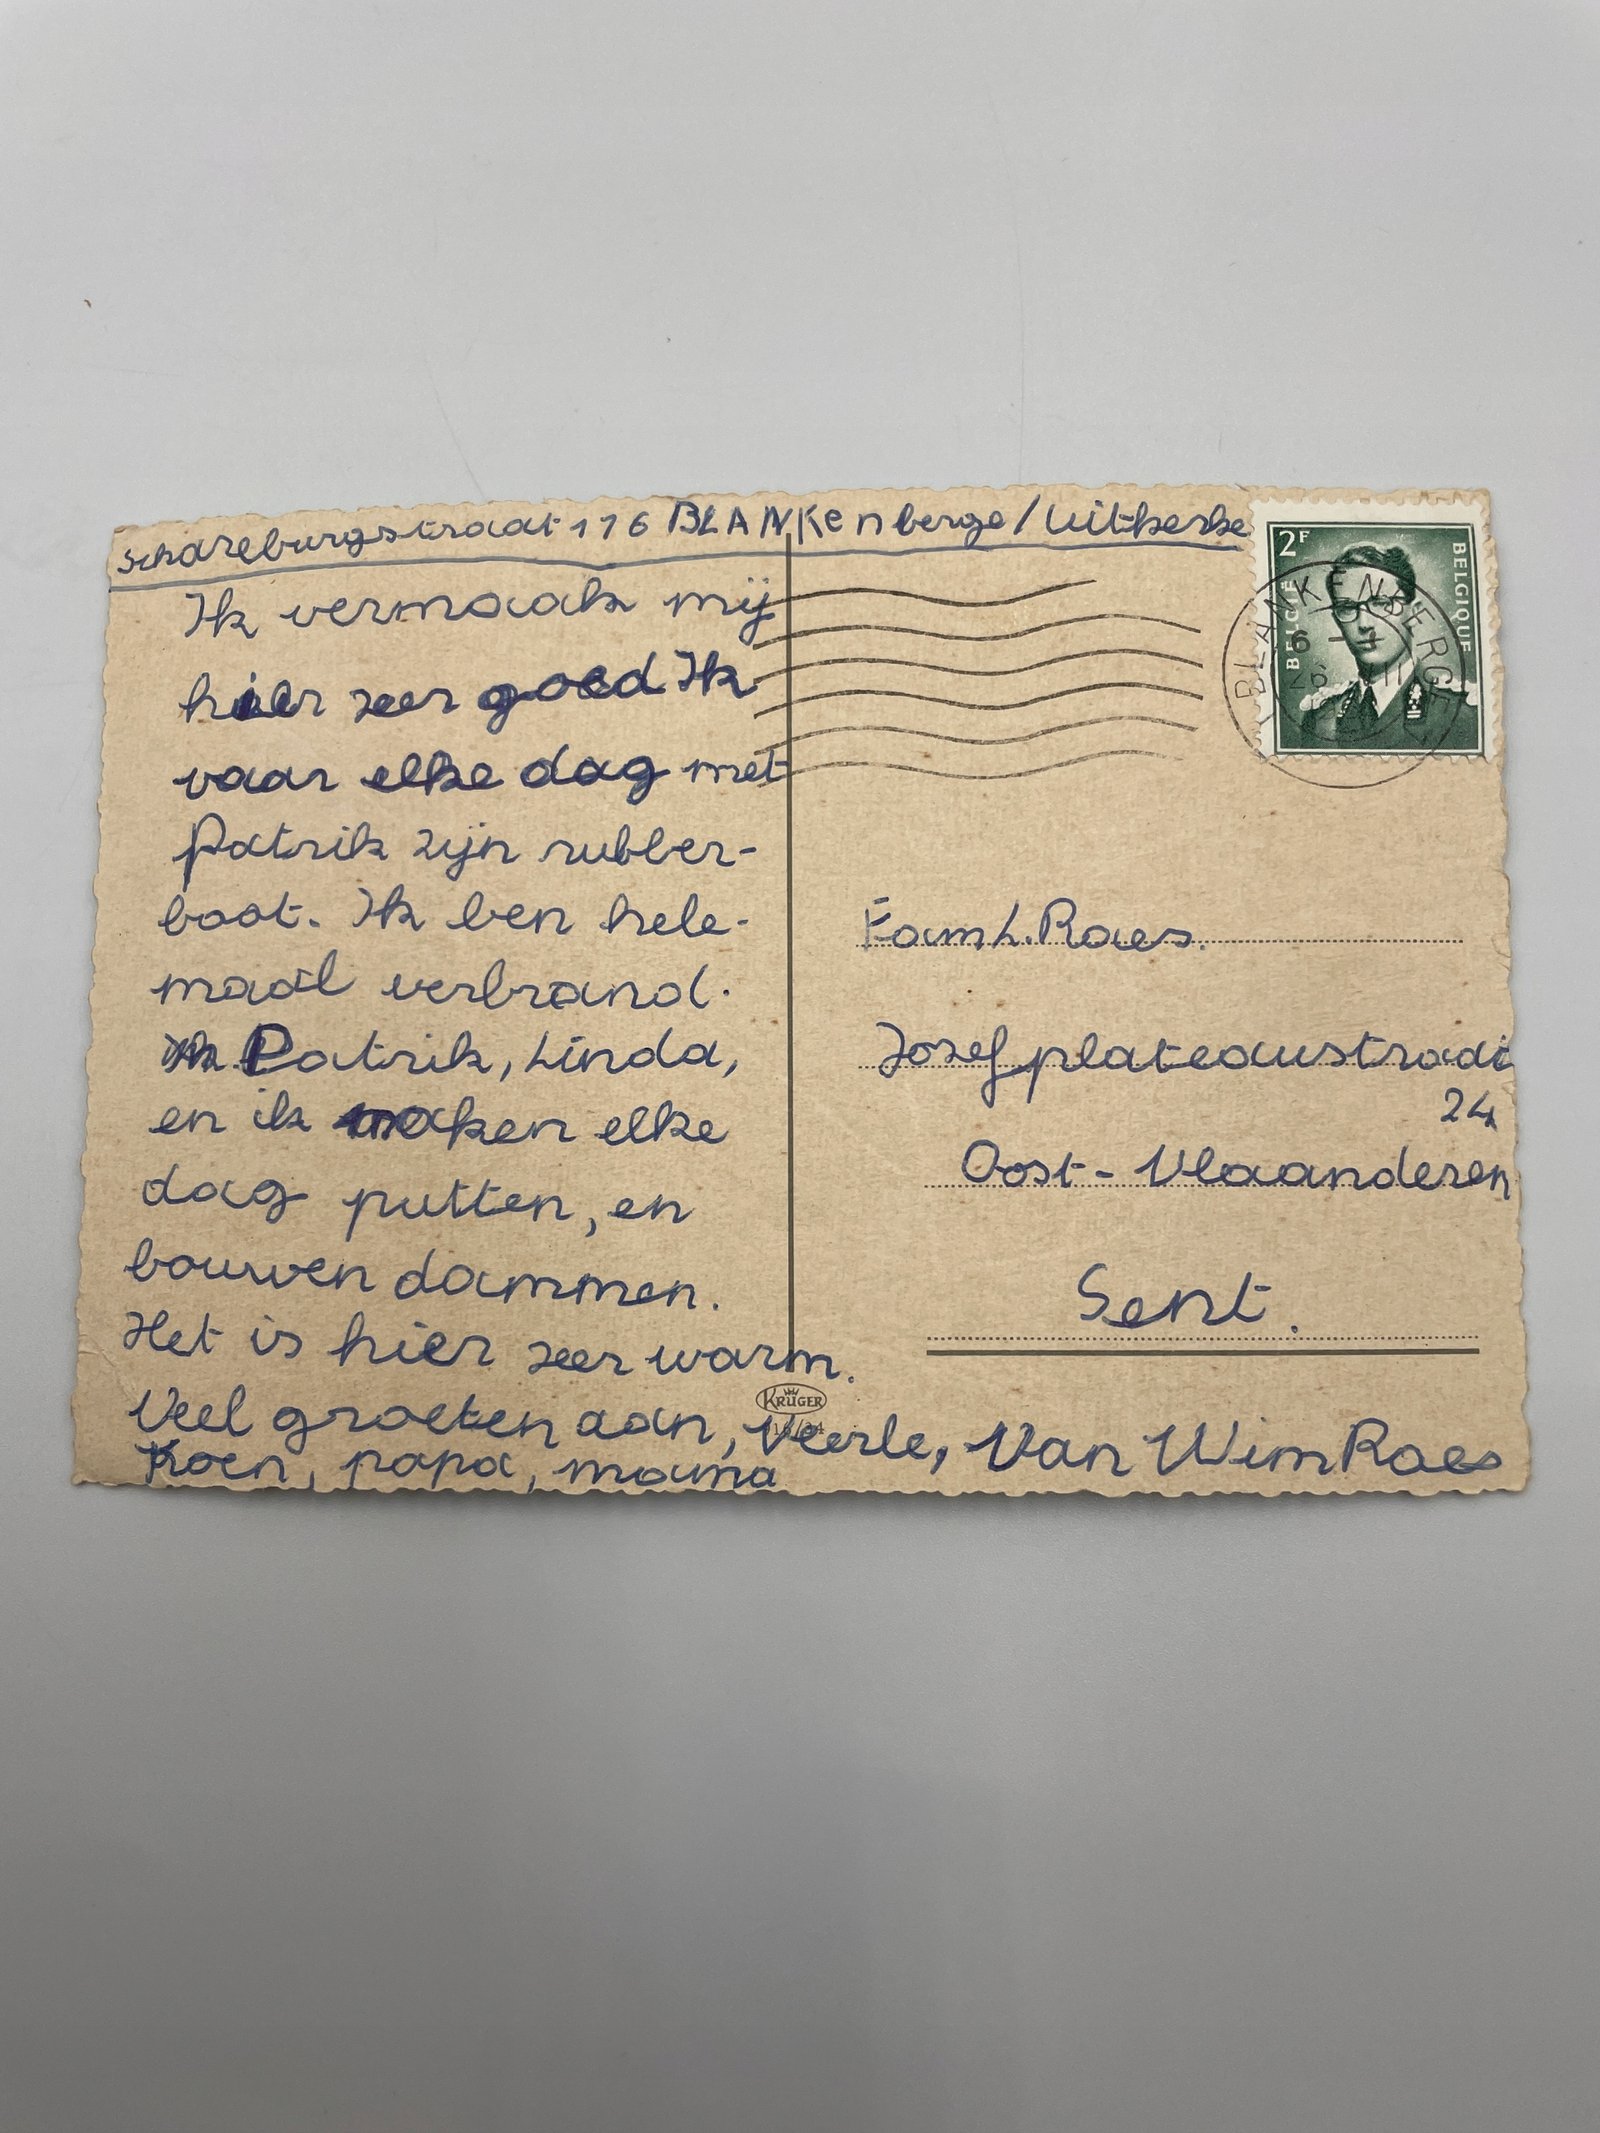 Schareburgstraat 176 BLANKenberge/Uitkerke
Ik vermaak mij
hier zeer goed Ik
vaar elke dag met
Patrik zijn rubber-
boot. Ik ben hele-
maal verbrand.
Patrik, Linda,
en ik maken elke
dag putten, en
bouwen dammen.
Het is hier zeer warm.
Veel groeten aan, Veerle, Van Wim Raes
Koen, papa, mama
KRÜGER
2F
BELGIE BELGIQUE
BLANKENBERGE
26
Fam L. Raes.
Jozef plateaustraat
24
Oost-Vlaanderen
Gent.